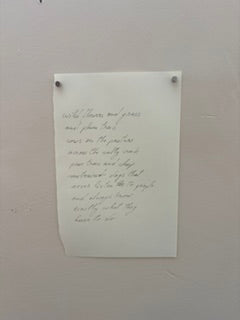 wild flowers and grass
and plum trees
cows on the pasture
across the valley and
pear trees and sheep
 dogs that
never listen to people
and always know
exactly what they
have to do